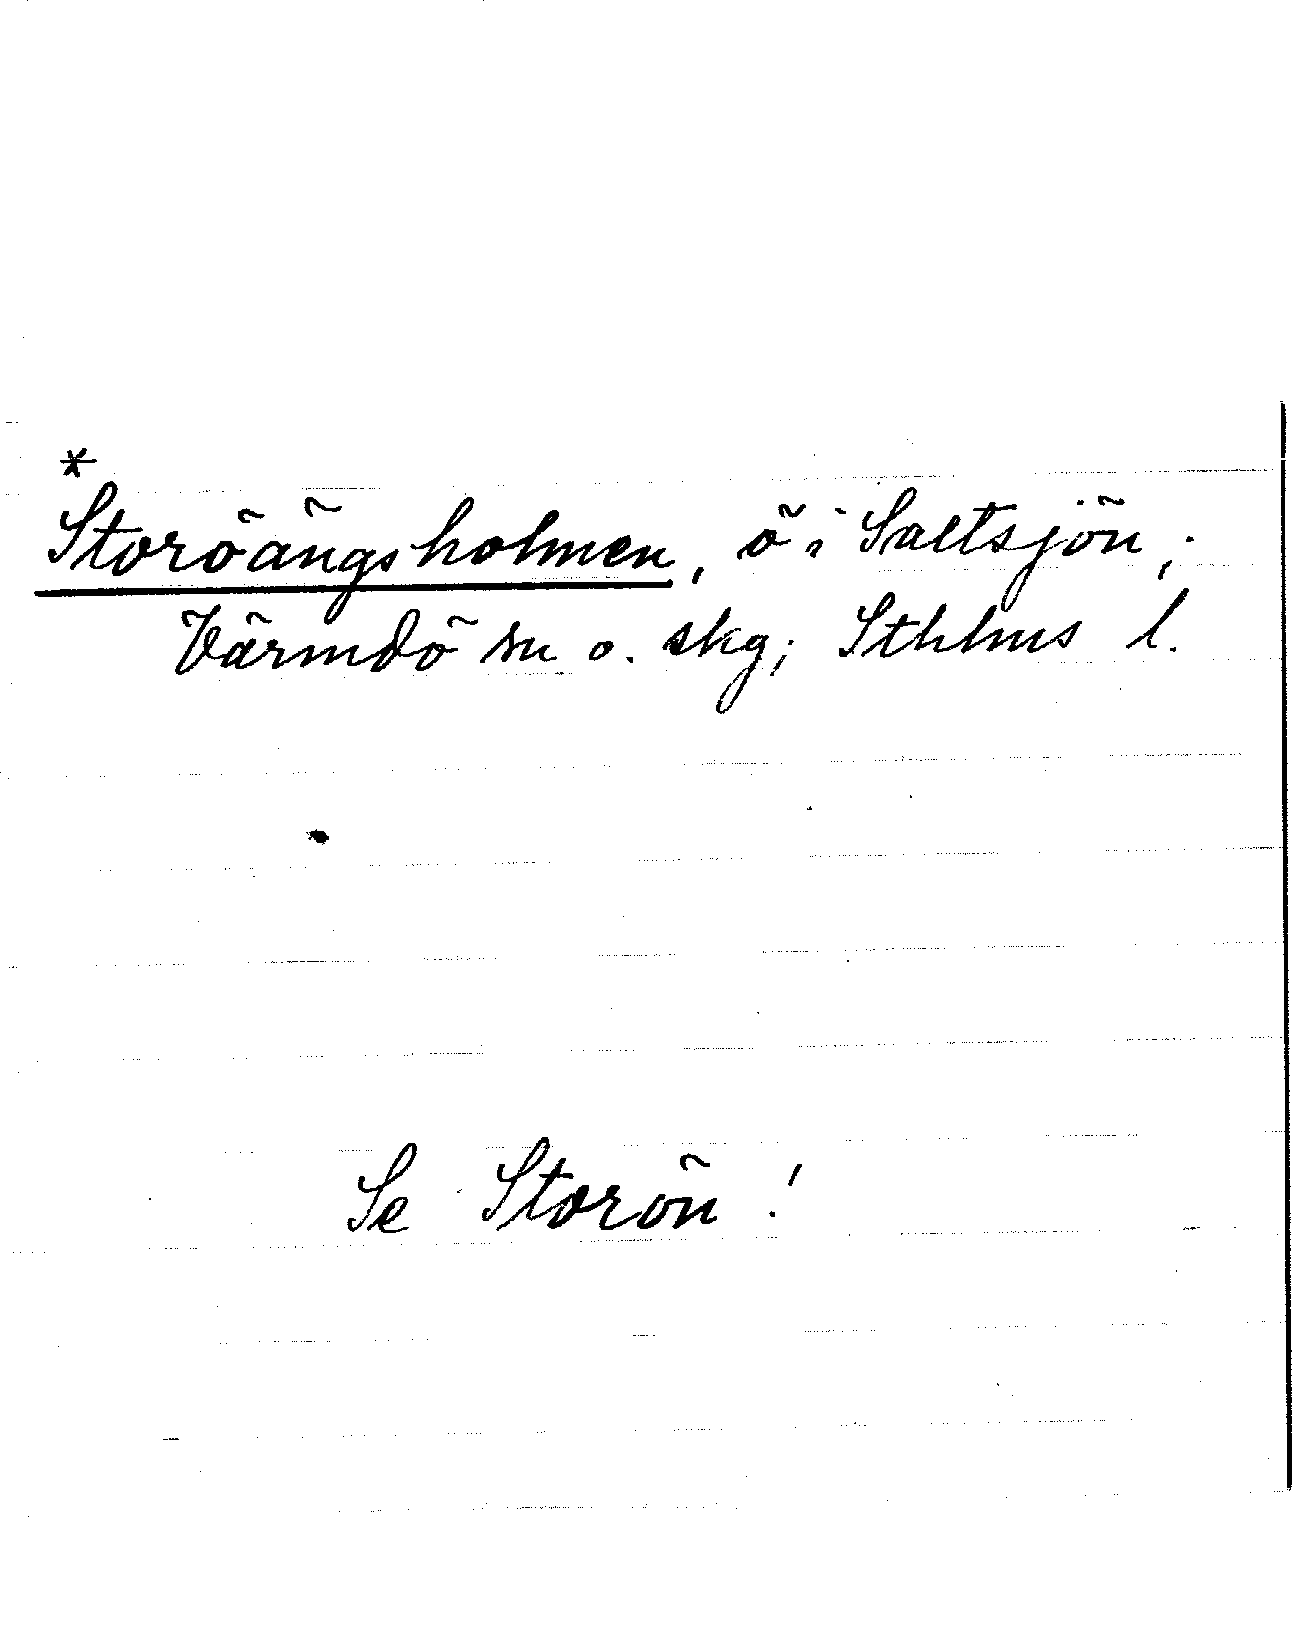 *
Storöängsholmen, ö i Saltsjön,
Värmdö sn o. skg; Sthlms l.
Se Storön!